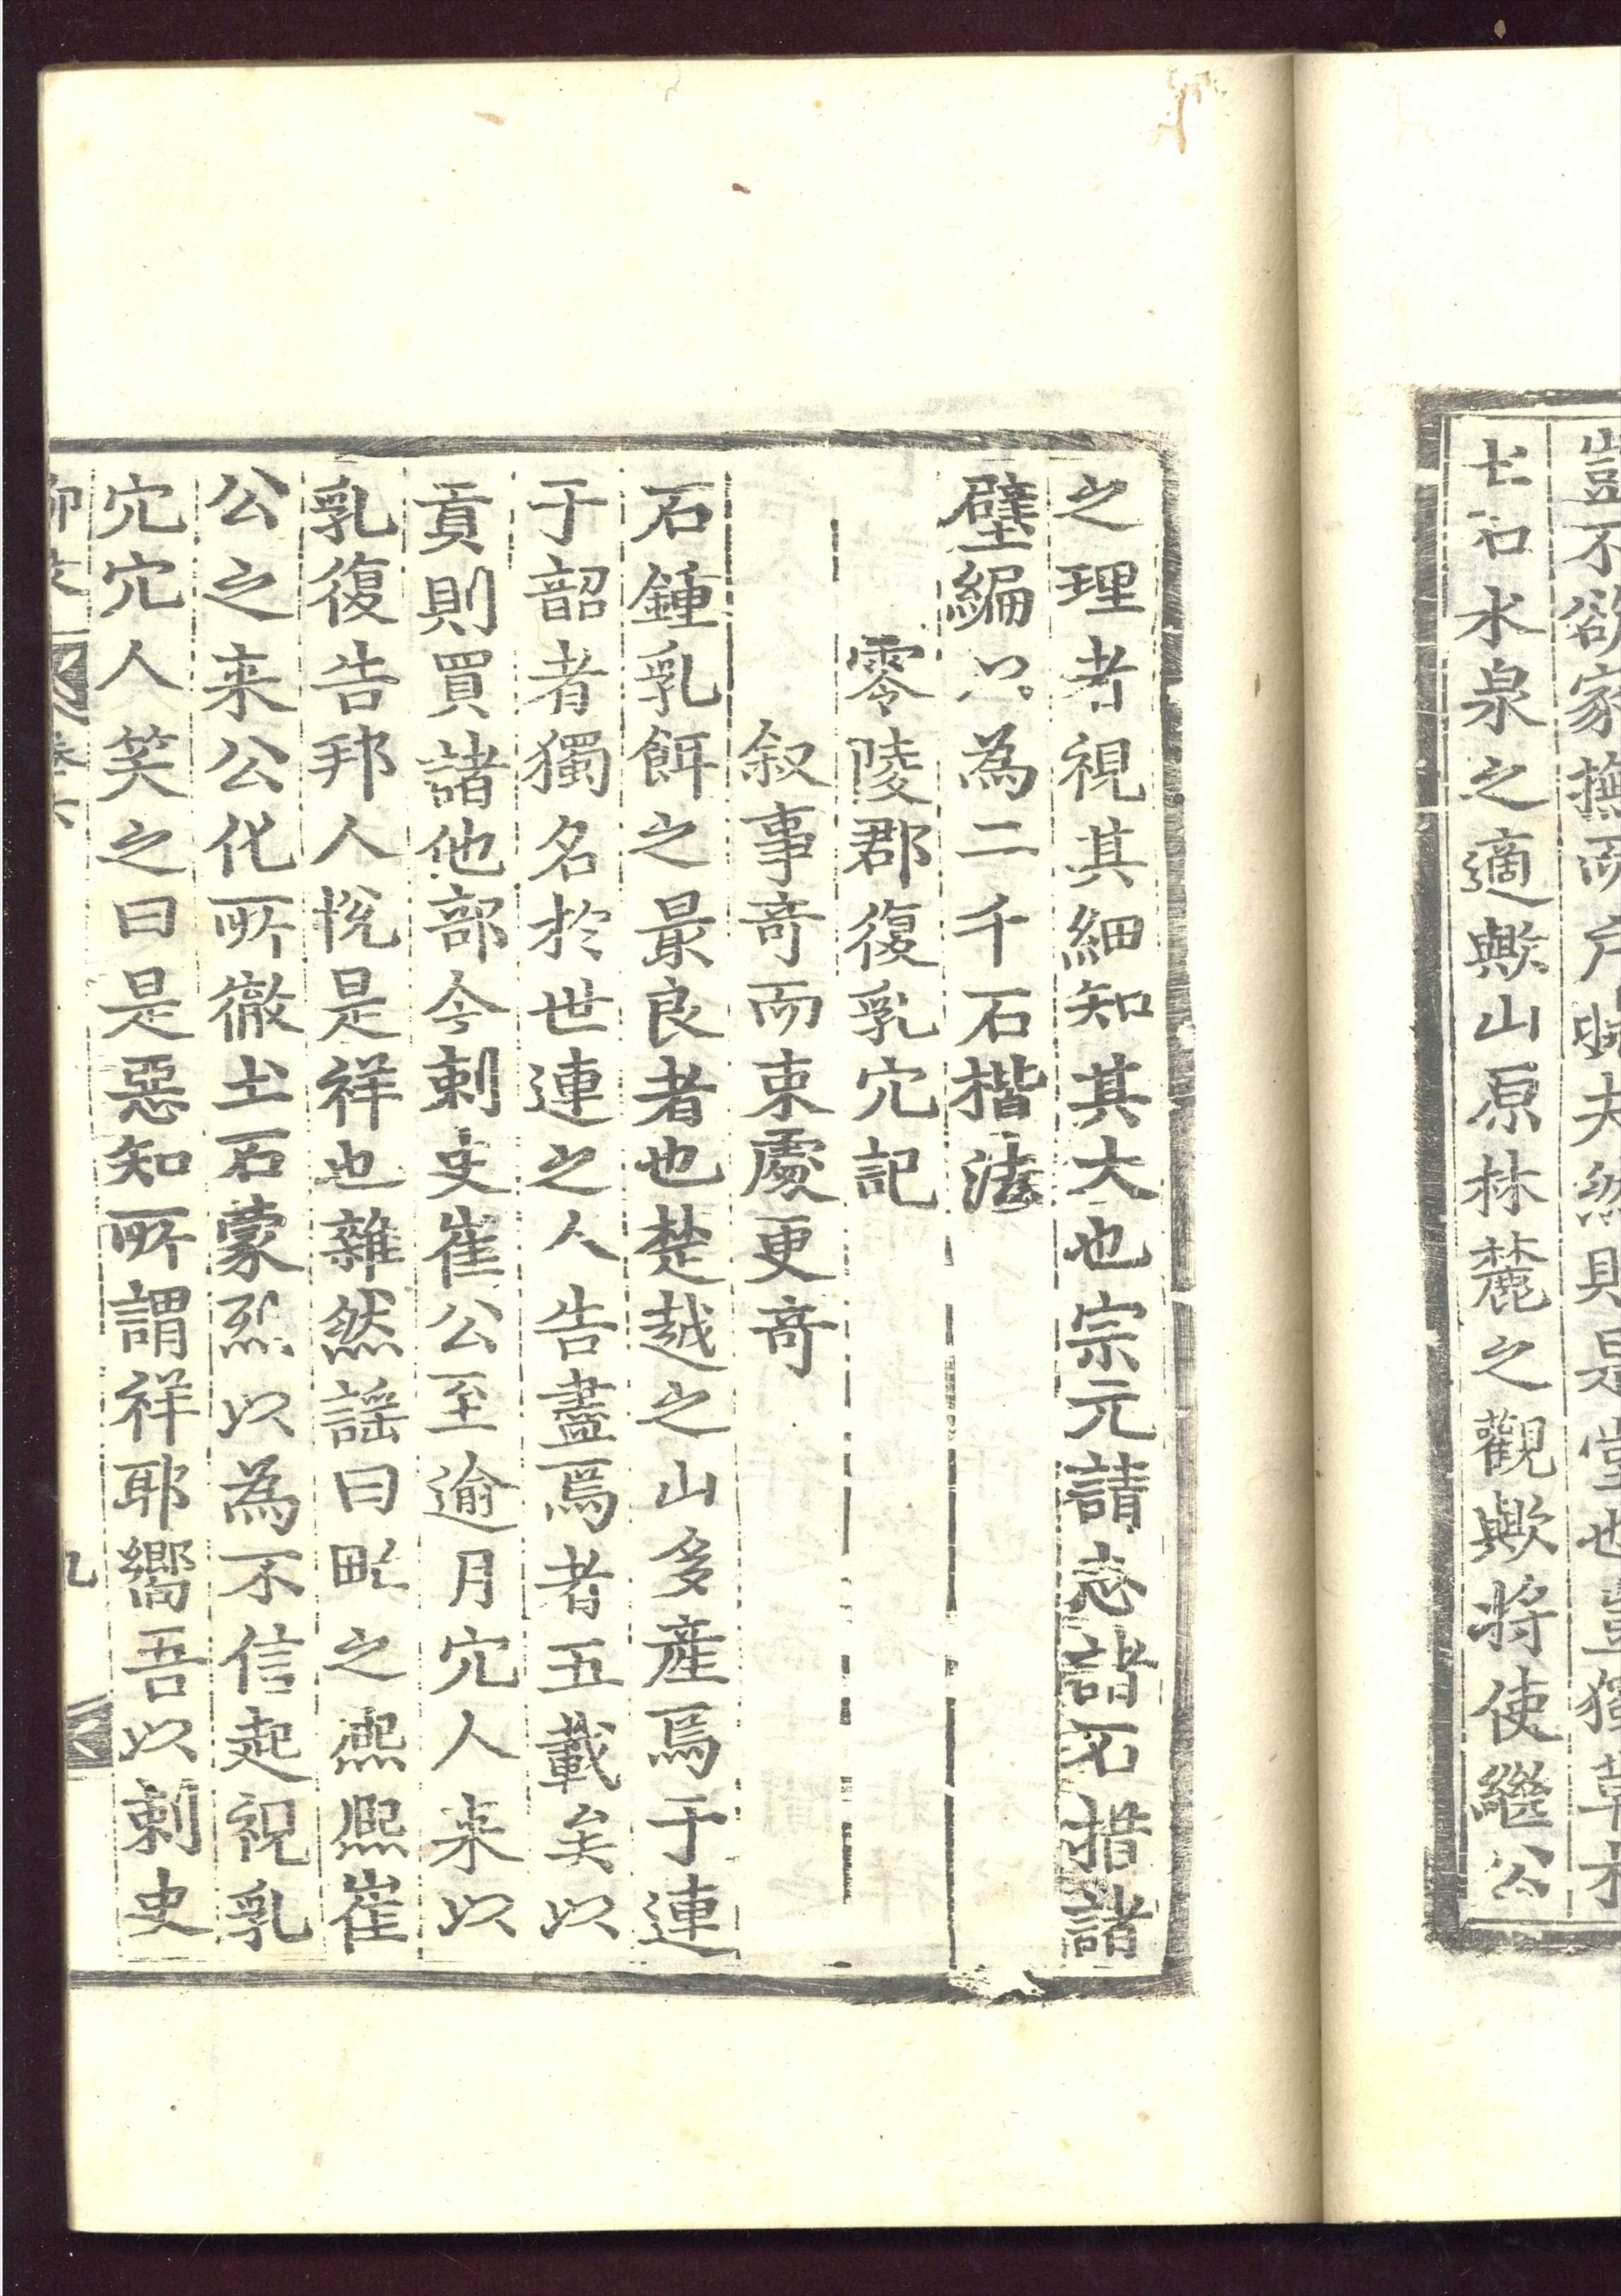 豈不欲家撫而戶曉夫然則是堂也豈獨草木
土石水泉之適歟山原林麓之觀歟將使繼公
之理者視其細知其大也宗元請志諸石措諸
壁編以為二千石楷法
零陵郡復乳穴記
叙事竒而束處更竒
石鍾乳餌之最良者也楚越之山多產焉于連
于韶者獨名於世連之人告盡焉者五載矣以
貢則買諸他部今刺史崔公至逾月穴人来以
乳復告邦人悅是祥也雜然謡曰甿之熈熈崔
公之来公化所徹土石蒙烈以為不信起視乳
穴穴人笑之曰是惡知所謂祥耶嚮吾以刺史
柳文 卷六 九